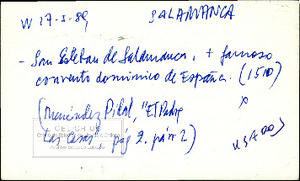 W 17-5-89 SALAMANCA
- San Esteban de Salamanca, + famoso
convento dominico de España. (1510)
(Menéndez Pidal, "El Padre
Las Casas" pág 2. párr 2)
x
USADOS